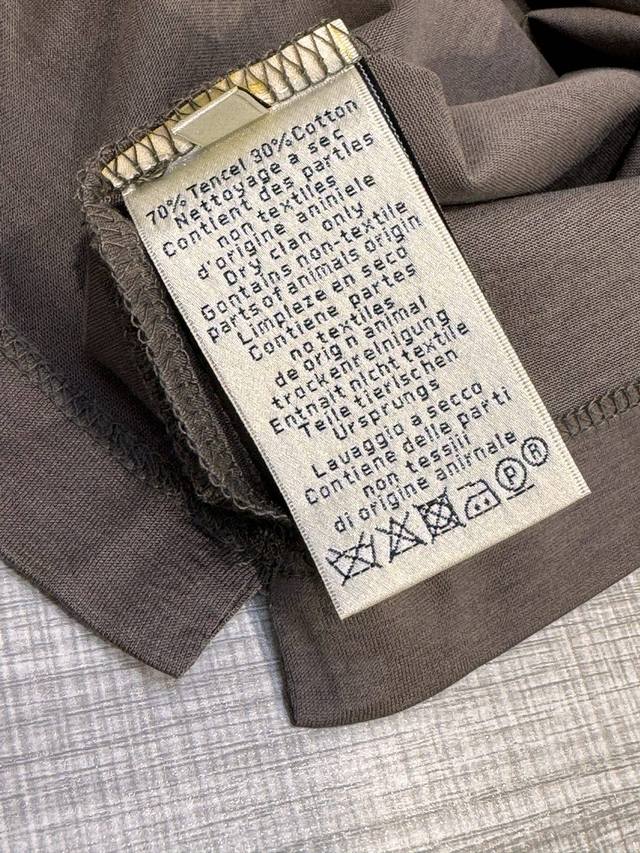 70% Tencel 30% Cotton
Nettoyage a sec
Contient des parties
non textiles
d'origine aniniele
Dry clan only
Gontains non-textile
parts of animals origin
Limpleze en seco
Contiene partes
no textiles
de orign animal
trockenreinigung
Entnait nicht textile
Teile tierlschen
Ursprungs
Lavaggio a secco
Contiene delle parti
non tessili
di origine anirnale
P R